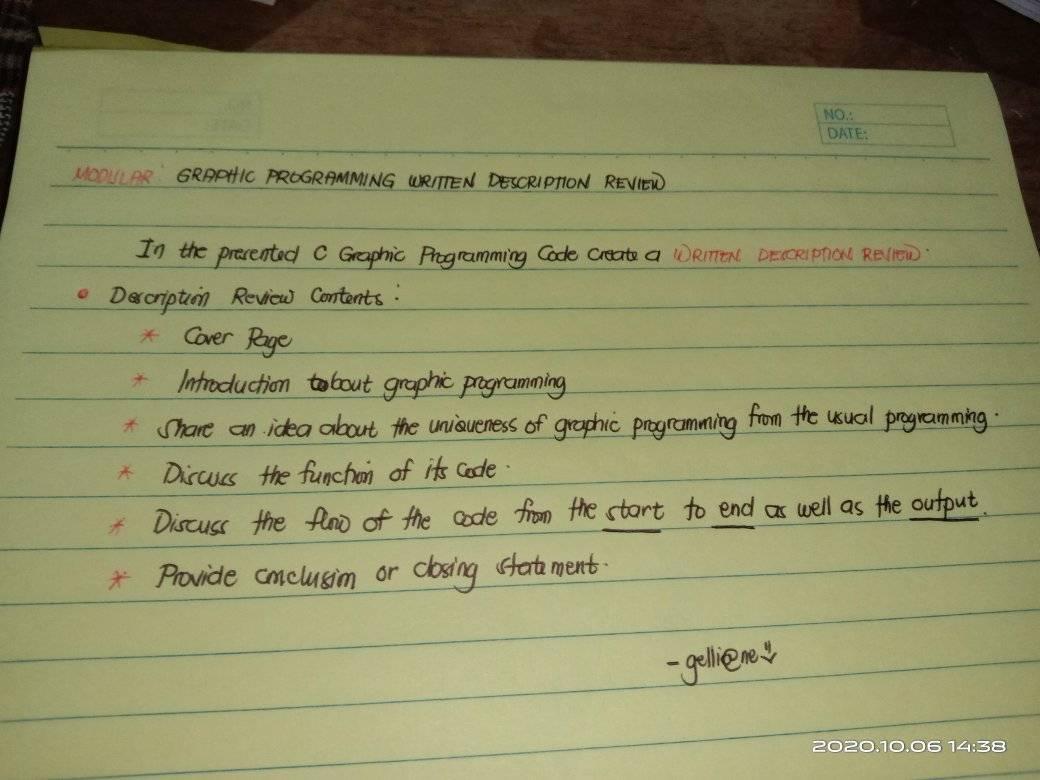 NO.:
DATE:
MODULAR: GRAPHIC PROGRAMMING WRITTEN DESCRIPTION REVIEW
In the presented C Graphic Programming Code Create a WRITTEN DESCRIPTION REVIEW.
• Description Review Contents:
* Cover Page
* Introduction about graphic programming
* Share an idea about the uniqueness of graphic programming from the usual programming.
* Discuss the function of its code.
* Discuss the flow of the code from the start to end as well as the output.
* Provide conclusion or closing statement.
- gelli@ne
2020.10.06 14:38